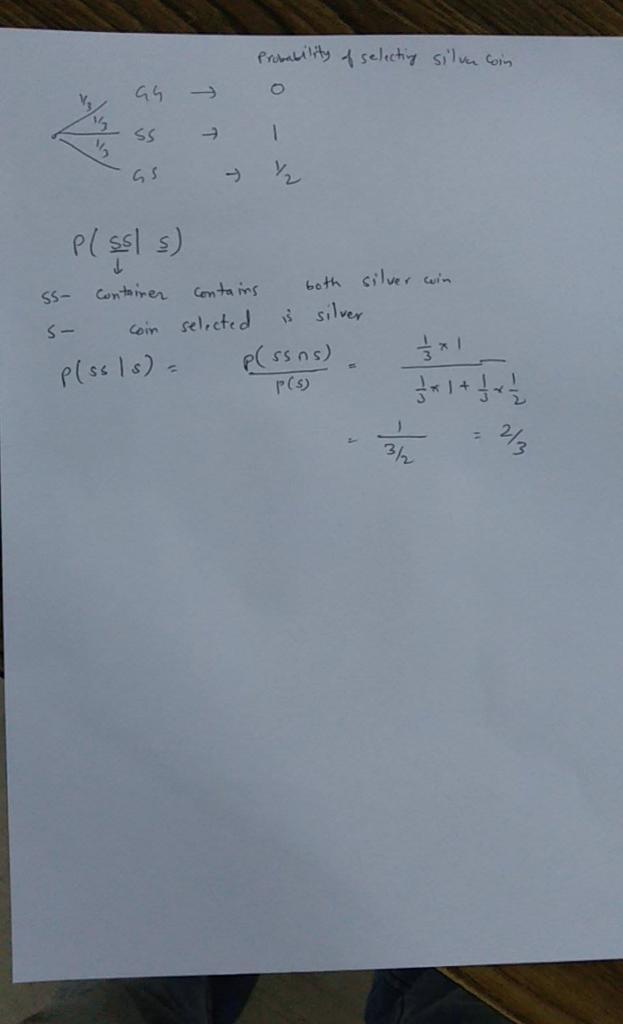 Probability of selecting silver coin
1/3 GG → 0
1/3 SS → 1
1/3 GS → 1/2
P(SS|S)
↓
SS- Container contains both silver coin
S- coin selected is silver
P(SS|S) = P(SS∩S)/P(S) = (1/3 × 1)/(1/3 × 1 + 1/3 × 1/2)
= 1/(3/2) = 2/3